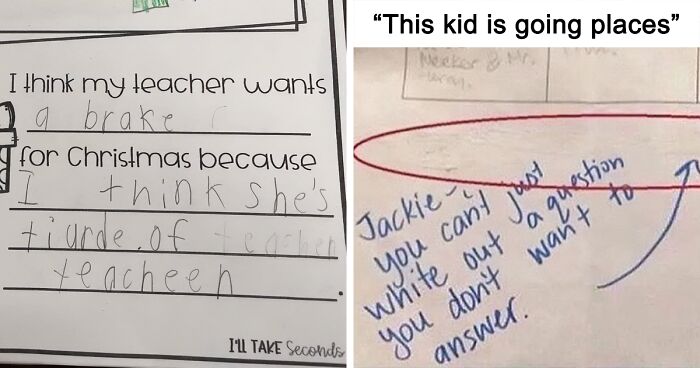 I think my teacher wants
a brake
for Christmas because
I think she's
tiarde.of teacher
teacheen
I'll TAKE Seconds
“This kid is going places”
Necker & Mr.
Jackie -
you can't just
white out a question
you don't want to
answer.